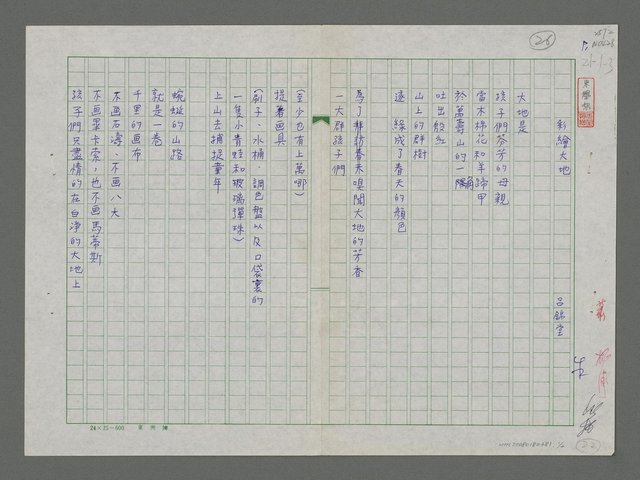 26
彩繪大地
呂錦堂
大地是
孩子們芬芳的母親
當木棉花和羊蹄甲
於萬壽山的一隅
吐出殷紅
山上的群樹
遂 綠成了春天的顏色
為了拜訪春天嗅聞大地的芳香
一大群孩子們
(至少也有上萬哪)
提着画具
(刷子、水桶 調色盤以及口袋裏的
一隻小青蛙和玻璃彈珠)
上山去捕捉童年
蜿蜒的山路
就是一卷
千里的画布
不画石濤、不画八大
不画畢卡索,也不画馬蒂斯
孩子們只盡情的在白净的大地上
24×25=600
22